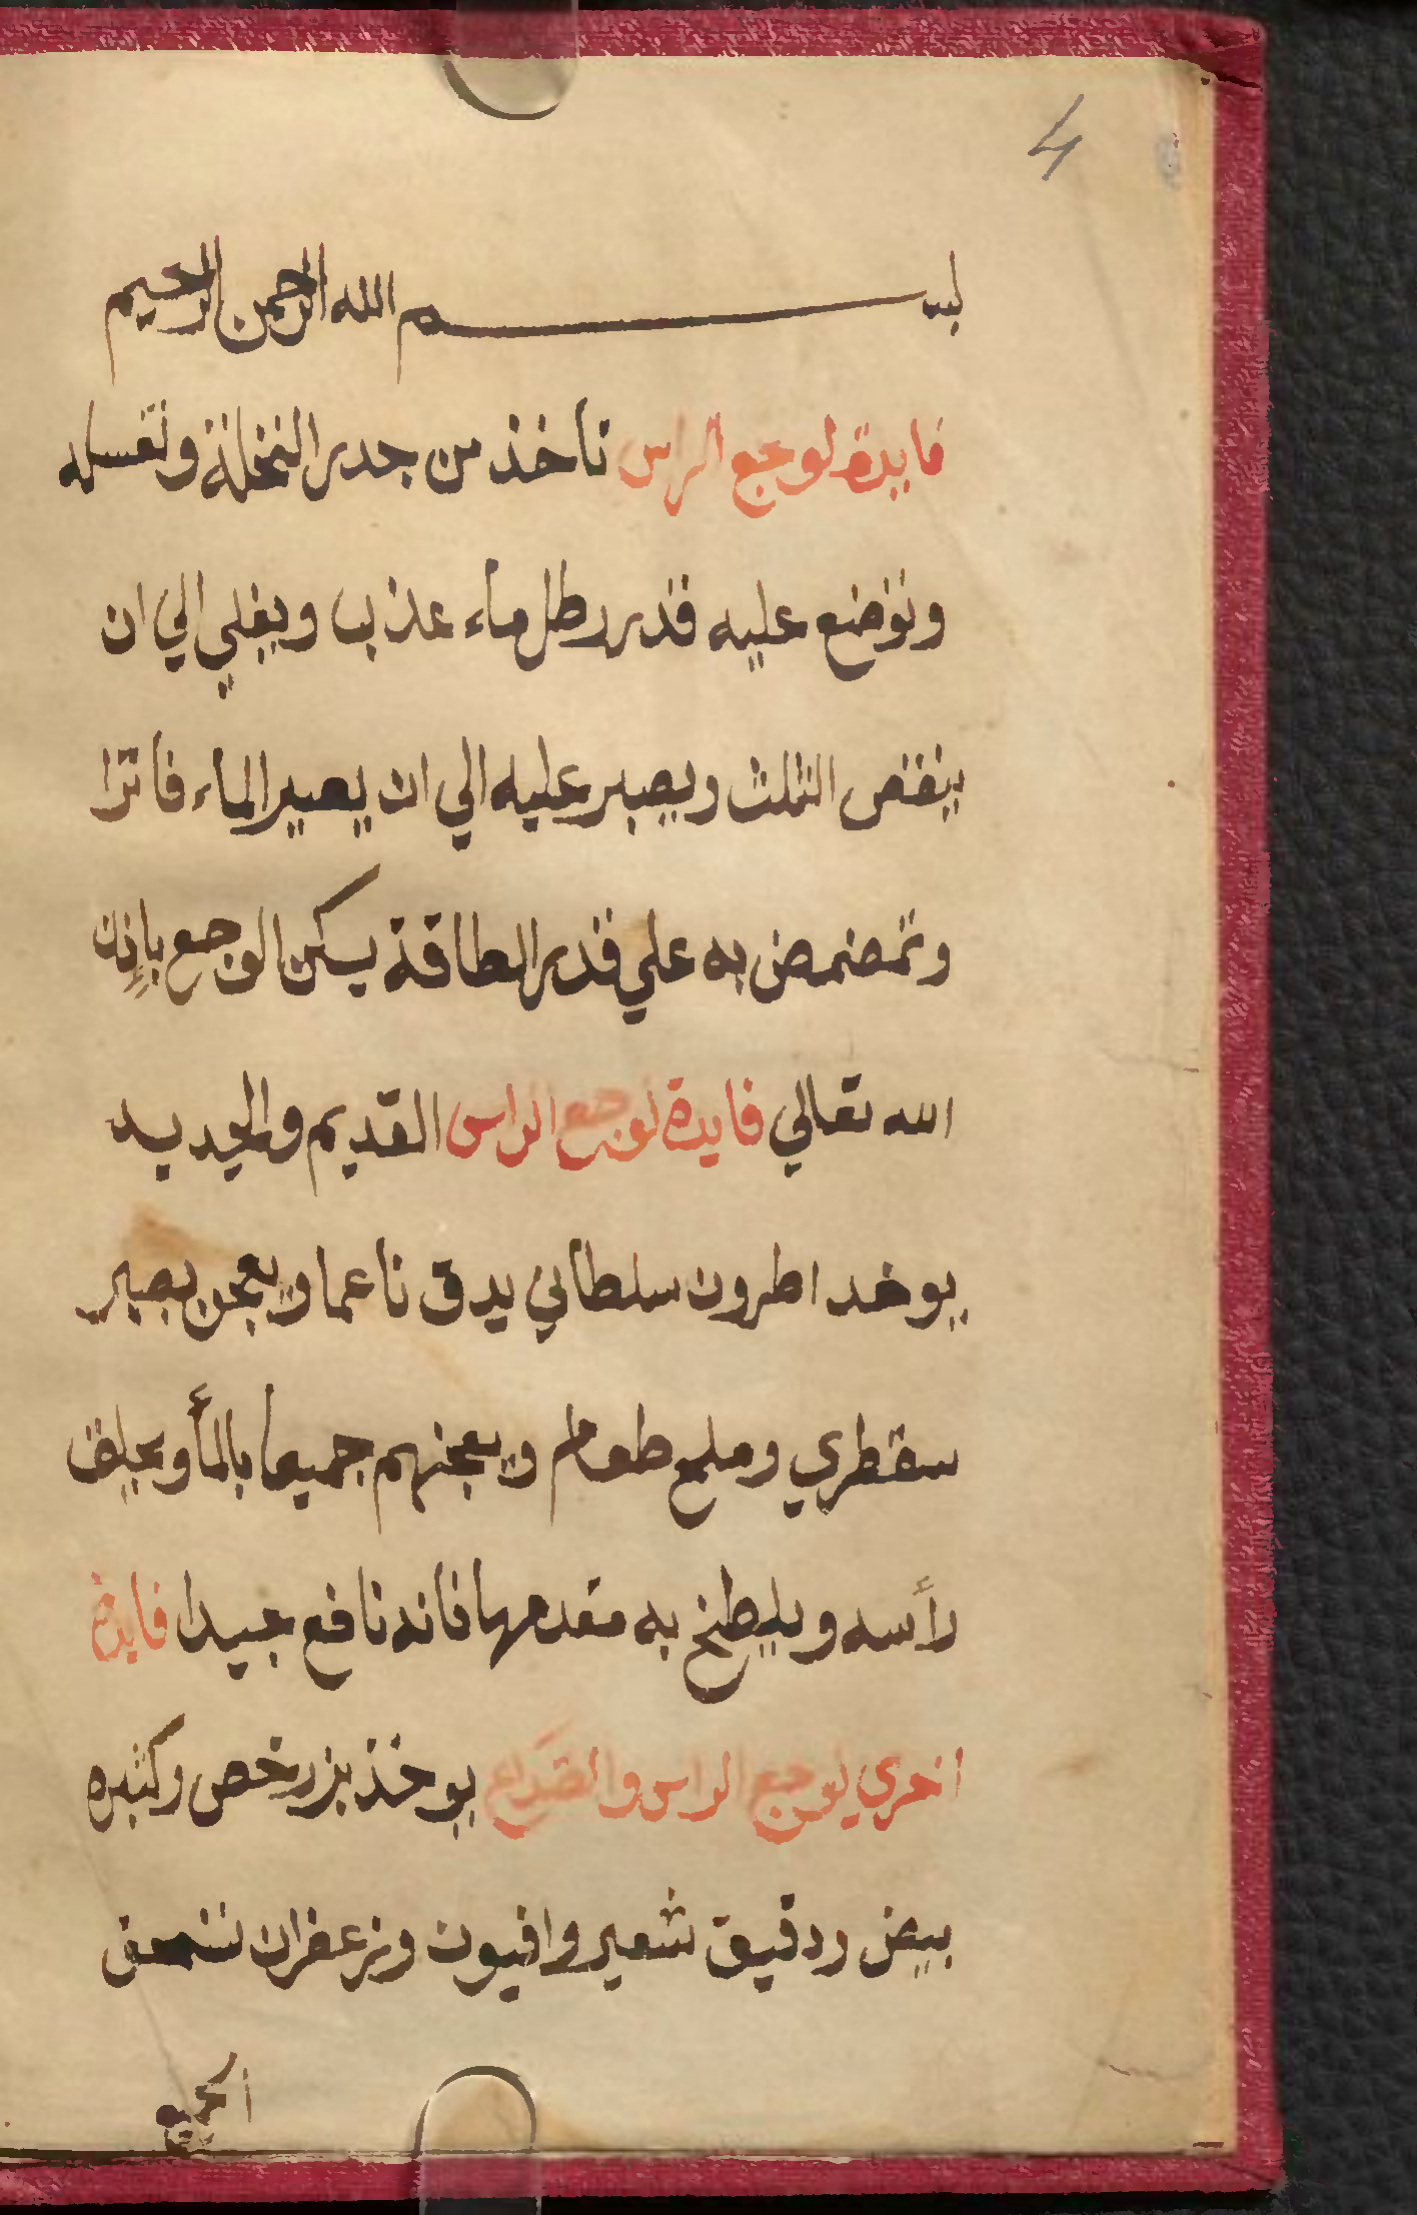 4
بسم الله الرحمن الرحيم
فايدة لوجع الراس تاخذ من جدر النخلة وتغسله
وتوضع عليه قدر رطل ماء عذب ويغلي الي ان
ينقص الثلث ويصبر عليه الي ان يصير الماء فاترا
وتمضمض به علي قدر الطاقة يسكن الوجع باذن
الله تعالي فايدة لوجع الراس القديم والجديد
يوخد اطرون سلطاني يدق ناعما ويعجن بصبر
سقطري وملح طعام ويعجنهم جميعا بالمأ ويحلق
رأسه ويليطخ به مقدمها فانه نافع جيدا فايدة
اخري لوجع الراس والصداع يوخذ بزر خص وكثيره
بيض ودقيق شعير وافيون وزعفران تسحق
الجميع